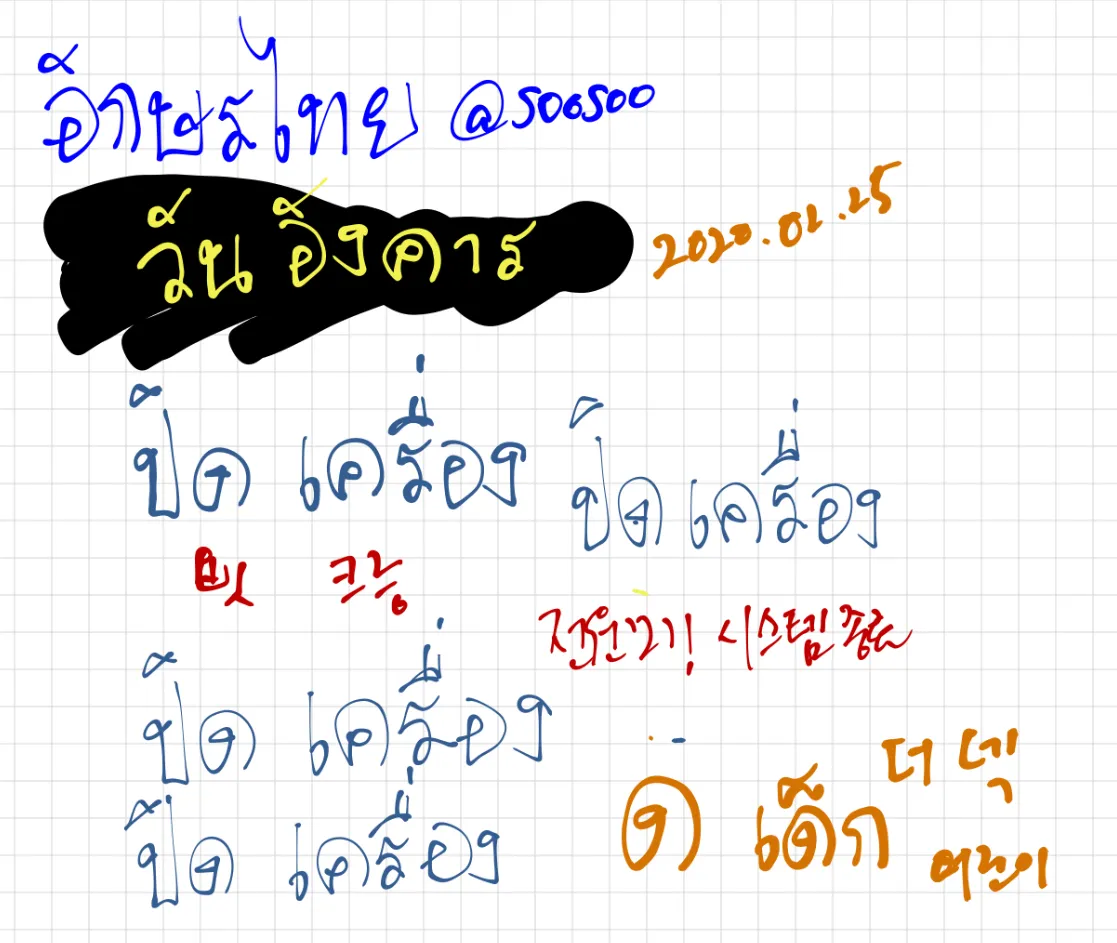 อักษรไทย @soosoo
วันอังคาร 2020.02.25
ปิดเครื่อง ปิดเครื่อง
삗 크릉
전원끄기! 시스템종료
ปิดเครื่อง
ปิดเครื่อง
ด เด็ก 더 덱
어린이